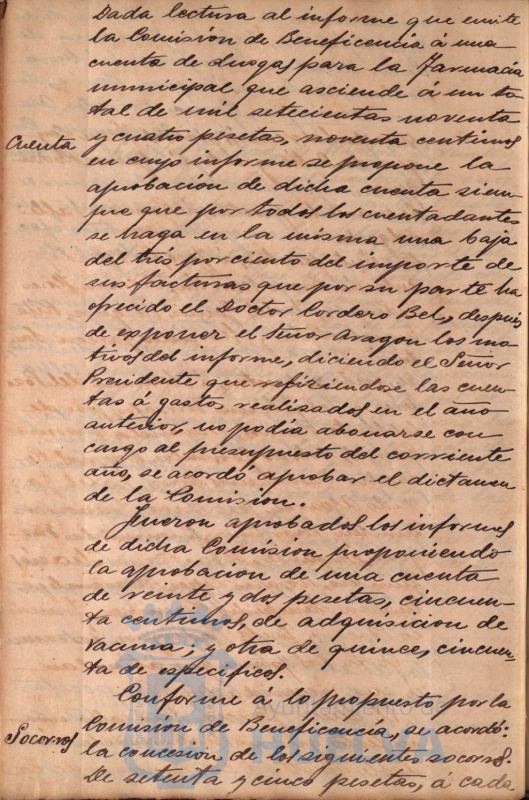 Dada lectura al informe que emite
la Comisión de Beneficencia á una
cuenta de drogas para la Farmacia
municipal que asciende á un to
tal de mil setecientas noventa
Cuenta
y cuatro pesetas, noventa centimos
en cuyo informe se propone la
aprobación de dicha cuenta siem-
pre que por todos los cuentadantes
se haga en la misma una baja
del tres por ciento del importe de
sus facturas que por su parte ha
ofrecido el Doctor Cordero Bel, después
de exponer el Señor Aragon los mo-
tivos del informe, diciendo el Señor
Presidente que refiriendose las cuen-
tas á gastos realizados en el año
anterior, no podía abonarse con
cargo al presupuesto del corriente
año, se acordó aprobar el dictamen
de la Comision.
Fueron aprobados los informes
de dicha Comisión proponiendo
la aprobacion de una cuenta
de veinte y dos pesetas, cincuen-
ta centimos, de adquisicion de
vacuna; y otra de quince, cincuen-
ta de especificos.
Conforme á lo propuesto por la
Socorros
Comisión de Beneficencia, se acordó:
la concesion de los siguientes socorros.
De setenta y cinco pesetas, á cada